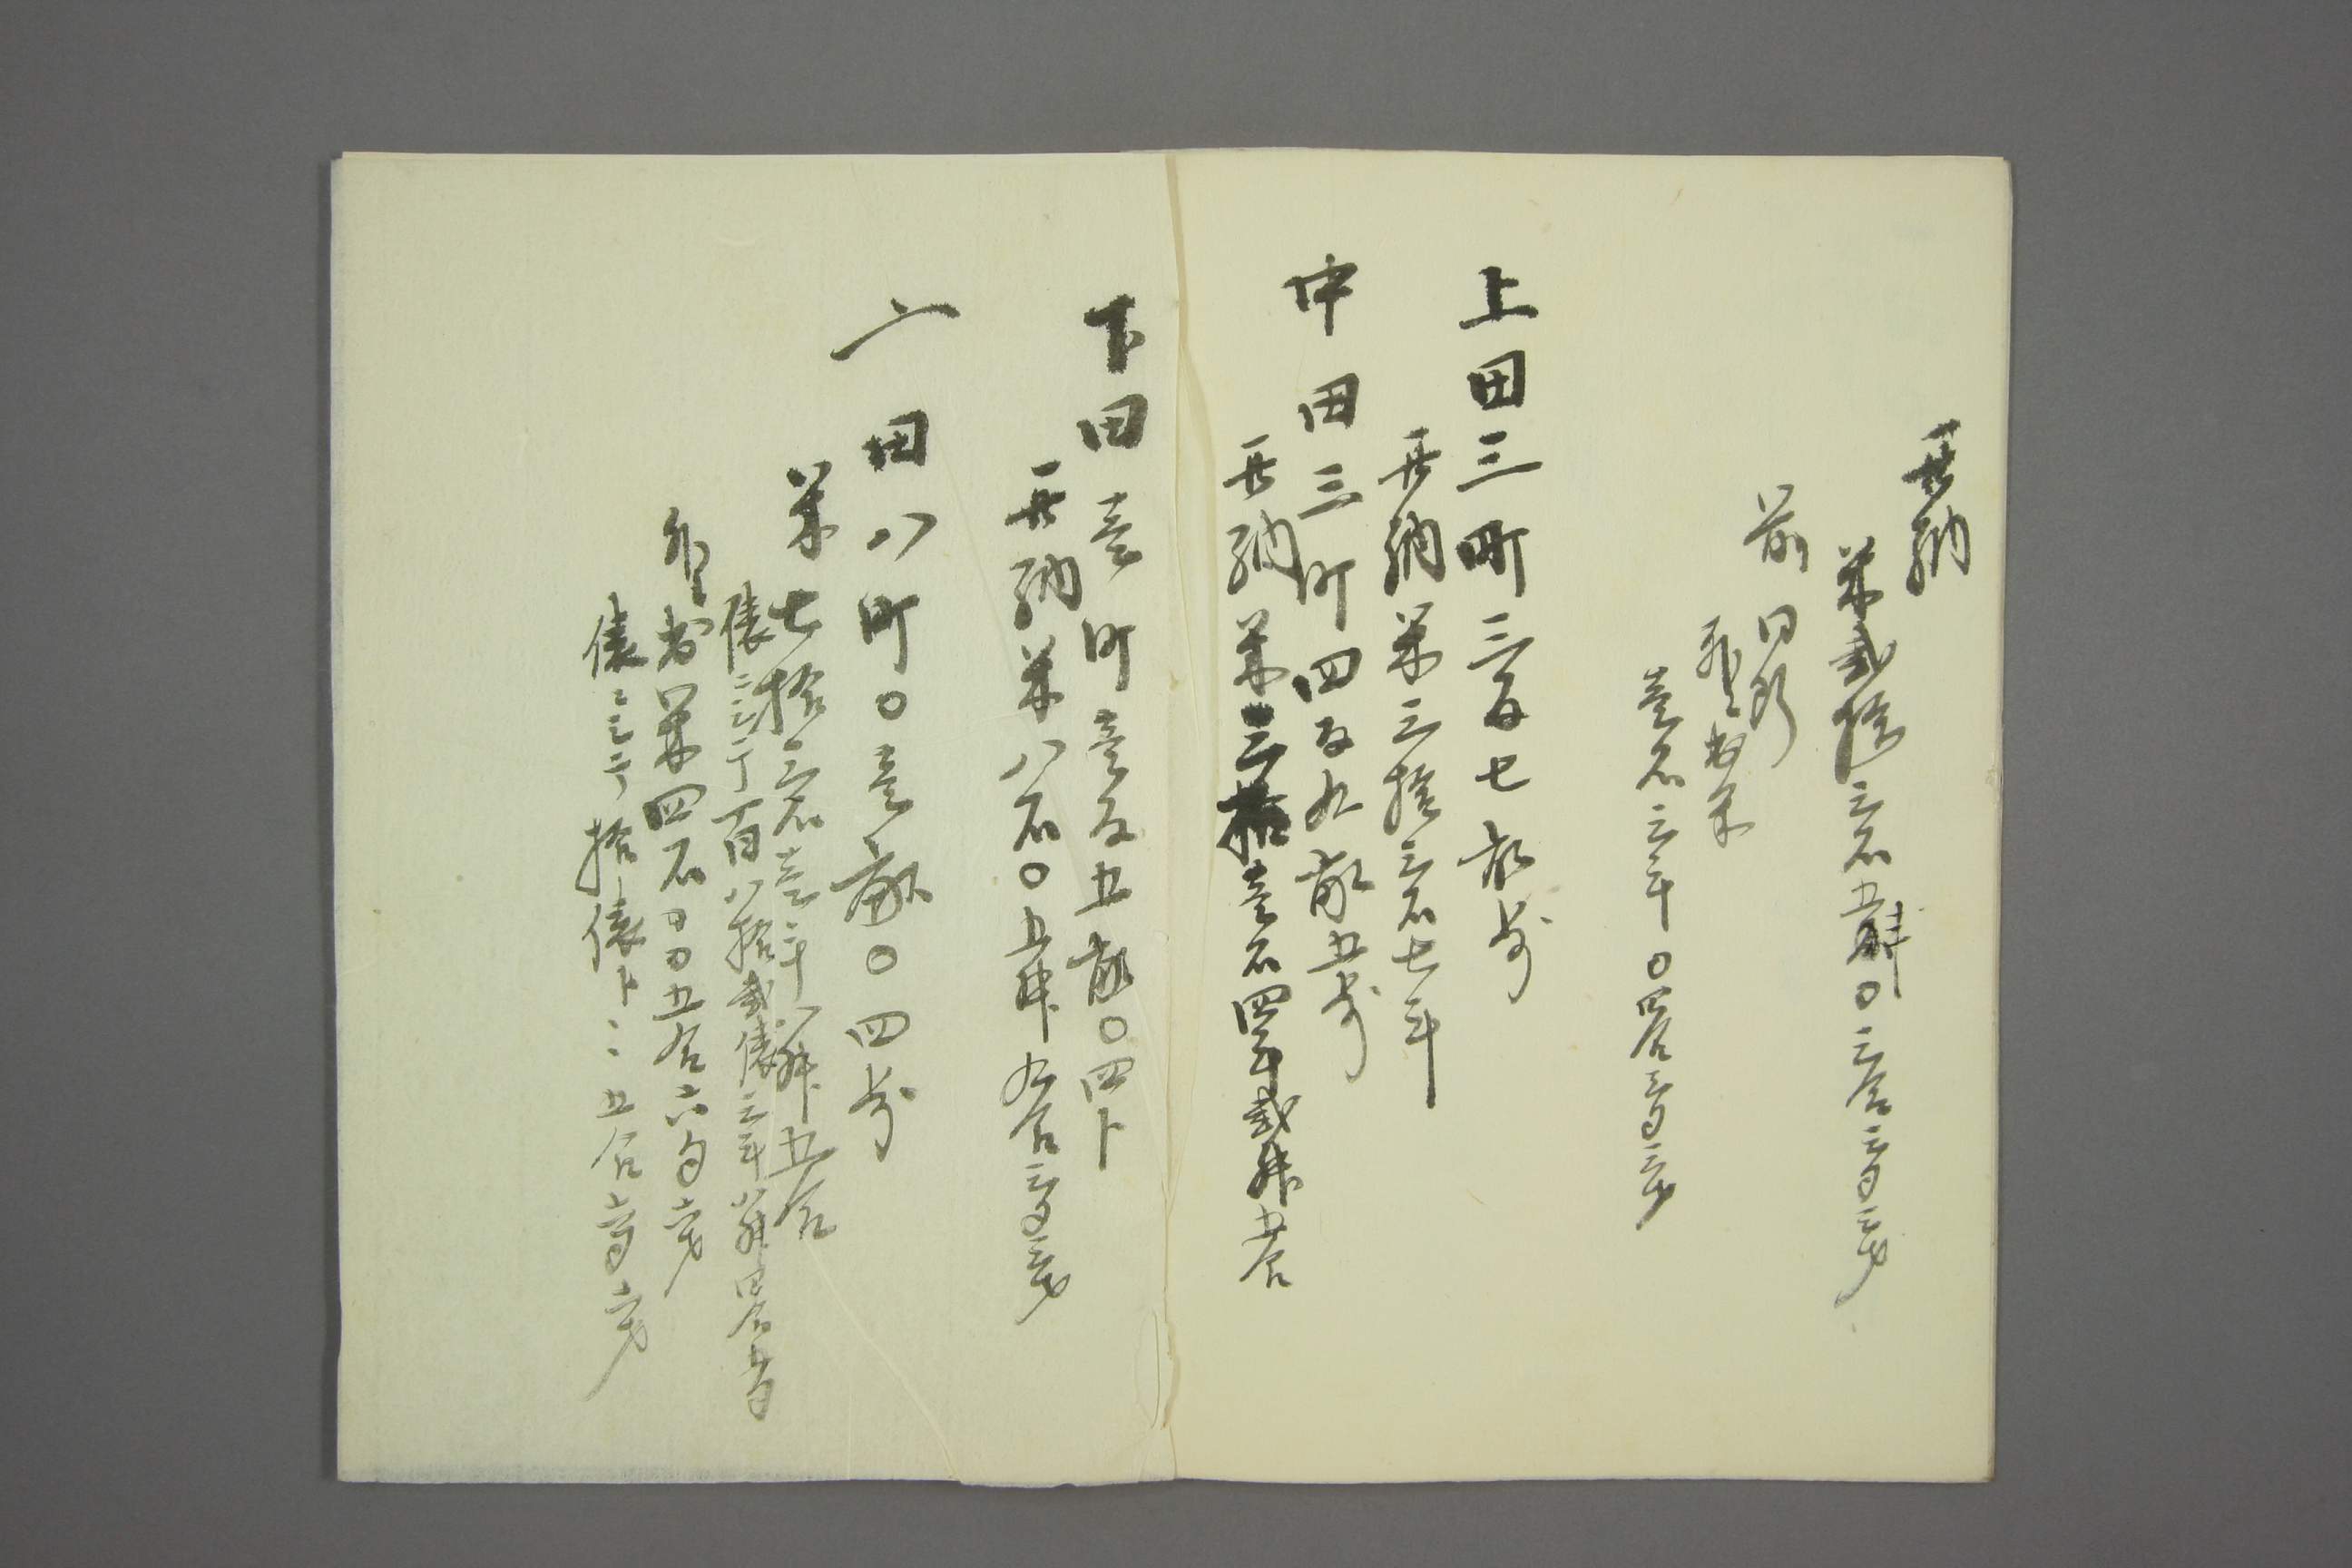 此納
米弐拾三石五舛〇三合三勺三才
前同断
外ニ出米
壱石三斗〇四合三勺三才
上田三町三反七畝歩
此納米三拾三石七斗
中田三町四反九畝五歩
此納米三拾壱石四斗弐舛五合
下田壱町壱反五畝〇四卜
此納米八石〇五舛九合三勺三才
田八町〇壱畝〇四歩
米七拾三石壱斗八舛五合
俵ニ〆百八拾弐俵三斗八舛四合五勺
外ニ出米四石〇〇五合六勺六才
俵ニ〆拾俵卜ニ五合六勺六才